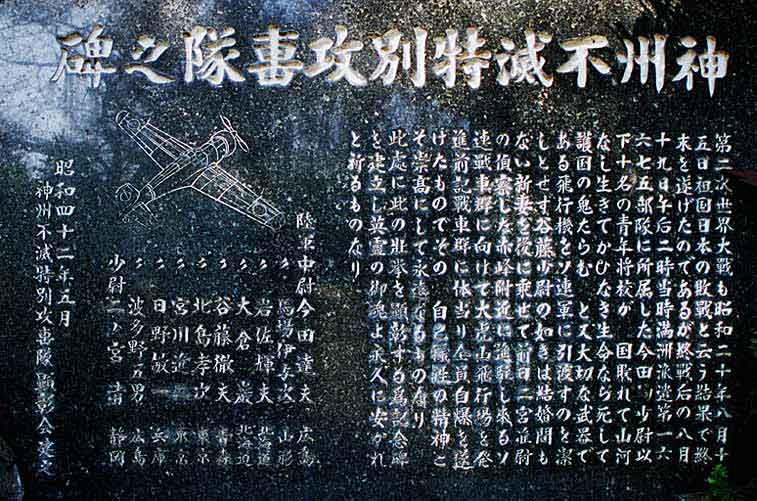 神州不滅特別攻撃隊之碑
第二次世界大戦も昭和二十年八月十
五日祖国日本の敗戦と云う結果で終
末を遂げたのであるが終戦后の八月
十九日午后二時当時満洲派遣第一六
六七五部隊に所属した今田少尉以
下十名の青年将校が 国敗れて山河
なし生きてかひなき生命なら死して
護国の鬼たらむ と又大切な武器で
ある飛行機をソ連軍に引渡すのを潔
しとせず谷藤少尉の如きは結婚間も
ない新妻を後に乗せて前日二宮准尉
の偵察した赤峰附近に進駐し来るソ
連戦車群に向けて大虎山飛行場を発
進前記戦車群に体当り全員自爆を遂
げたものでその 自己犠牲の精神こ
そ崇高にして永遠なるものなり
此處に此の壮挙を顕彰する為記念碑
を建立し英霊の御魂よ永久に安かれ
と祈るものなり
陸軍中尉今田達夫 広島
〃 馬場伊与次 山形
〃 岩佐輝夫 北海道
〃 大倉巌 北海道
〃 谷藤徹夫 青森
〃 北島孝次 東京
〃 宮川進二 東京
〃 日野敏一 兵庫
〃 波多野五男 広島
少尉二ノ宮 清 静岡
昭和四十二年五月
神州不滅特別攻撃隊 顕彰会建之